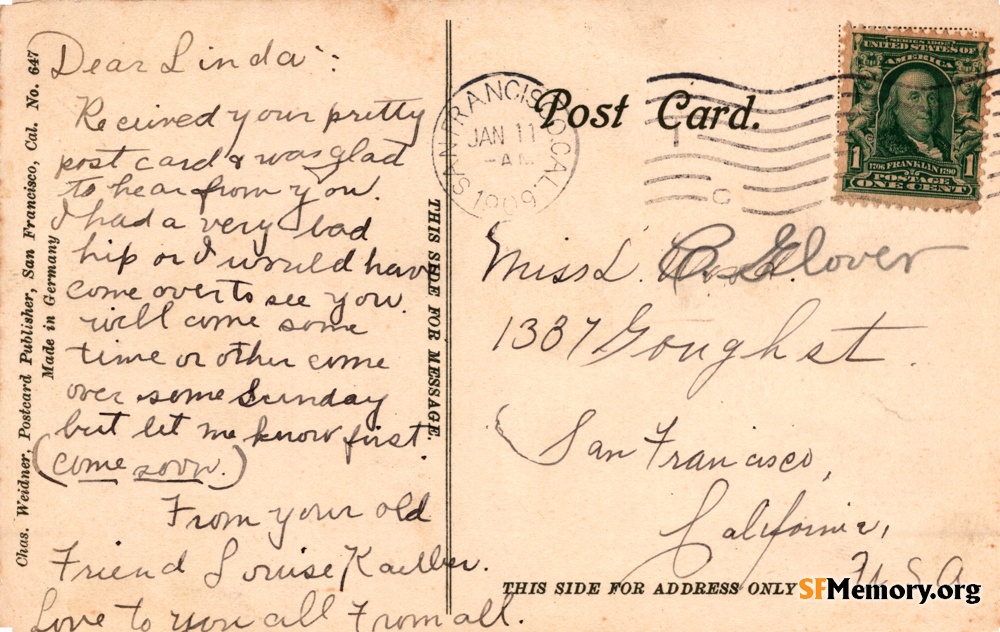 Chas. Weidner, Postcard Publisher, San Francisco, Cal. No. 647
Made in Germany
Dear Linda:
Recieved your pretty
post card & was glad
to hear from you.
I had a very bad
hip or I would have
come over to see you
will come some
time or other come
over some Sunday
but let me know first.
(come soon.)
From your old
Friend Louise
Love to you all From all.
THIS SIDE FOR MESSAGE.
Post Card.
SAN FRANCISCO, CAL.
JAN 11
-AM
1909
C
SERIES 1902
UNITED STATES OF
AMERICA
1706 FRANKLIN 1790
POSTAGE
1 1
ONE CENT
Miss L. Glover
1387 Gough st.
San Francisco,
California,
U S A
THIS SIDE FOR ADDRESS ONLY
SFMemory.org